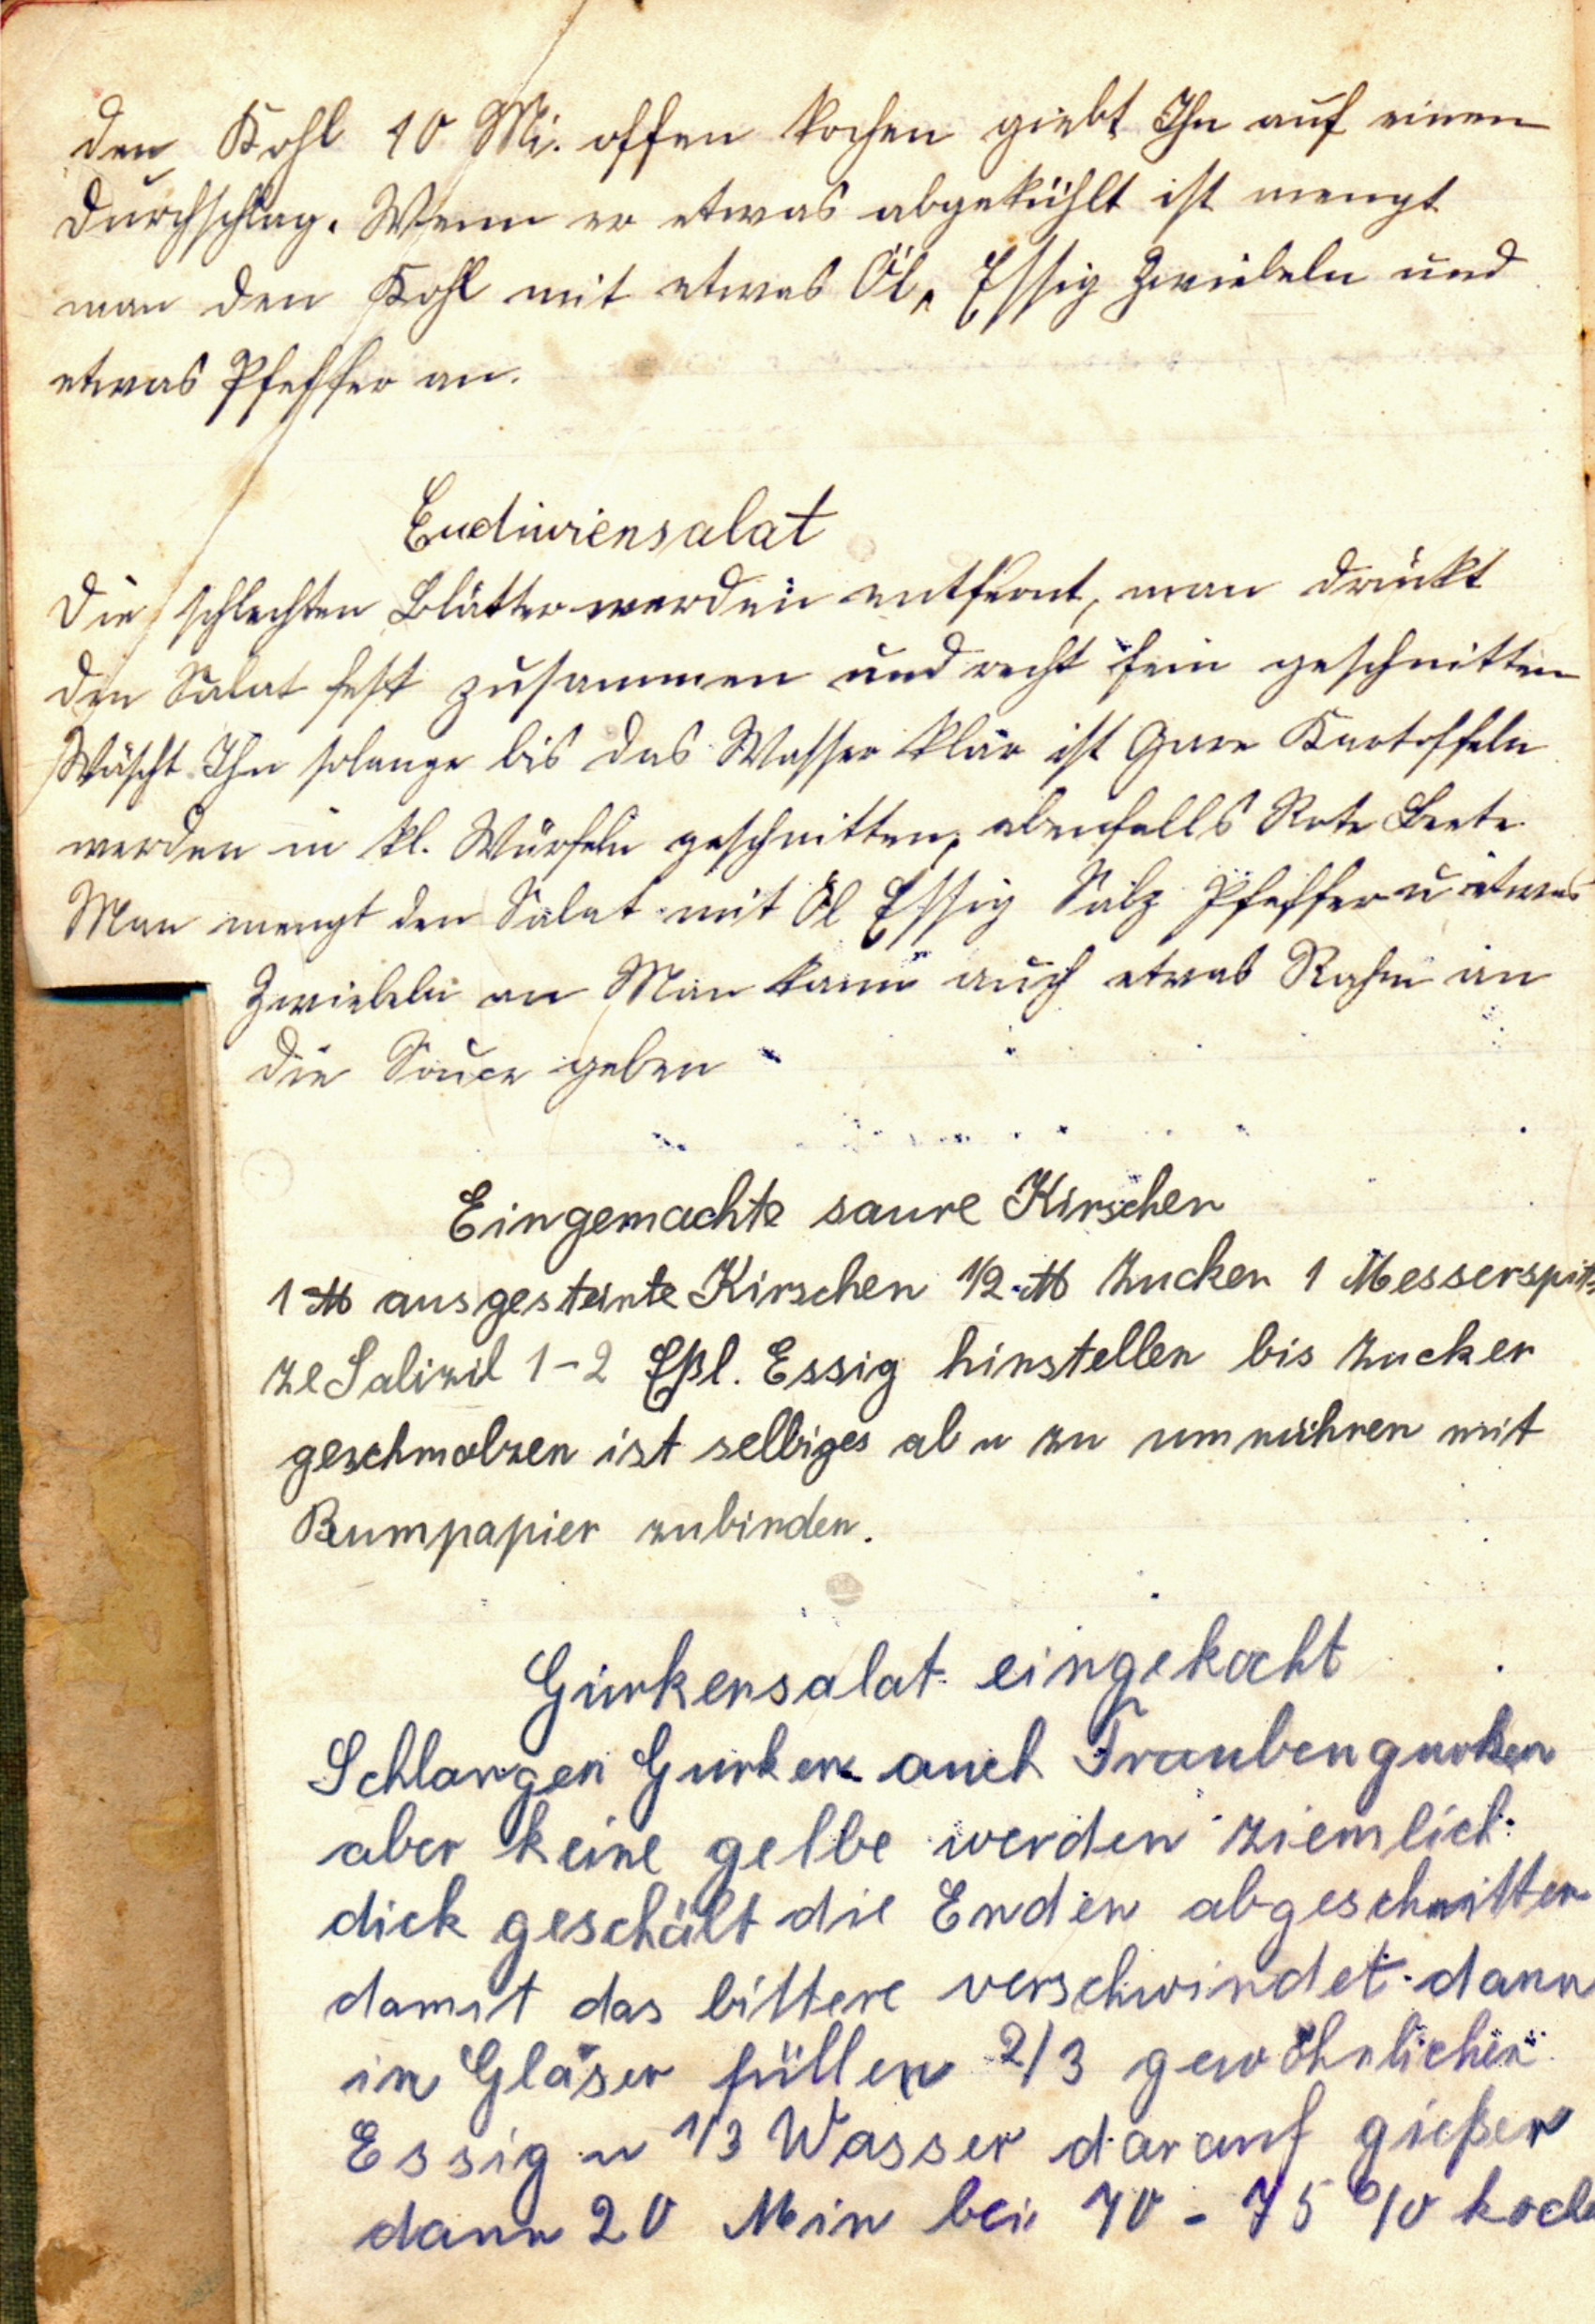 den Kohl 10 Mi. offen kochen giebt Ihn auf einen
Durchschlag. Wenn er etwas abgekühlt ist mengt
man den Kohl mit etwas Öl, Essig Zwiebeln und
etwas Pfeffer an.
Endiviensalat
Die schlechten Blätter werden entfernt, man drückt
den Salat fest zusammen und recht fein geschnitten
Wäscht Ihn solange bis das Wasser klar ist Gare Kartoffeln
werden in kl. Würfeln geschnitten, ebenfalls Rote Beete
Man mengt den Salat mit Öl Essig Salz Pfeffer u etwas
Zwiebeln an Man kann auch etwas Rahm an
die Souce geben
Eingemachte saure Kirschen
1 ℔ ausgesteinte Kirschen 1/2 ℔ Zucker 1 Messerspit-
ze Salizil 1-2 Eßl. Essig hinstellen bis Zucker
geschmolzen ist selbiges ab u zu umrühren mit
Bumpapier zubinden.
Gurkensalat eingekocht
Schlangen Gurken auch Traubengurken
aber keine gelbe werden ziemlich
dick geschält die Enden abgeschnitten
damit das bittere verschwindet dann
in Gläser füllen 2/3 gewöhnlichen
Essig u 1/3 Wasser darauf gießen
dann 20 Min bei 70 - 75 % koch